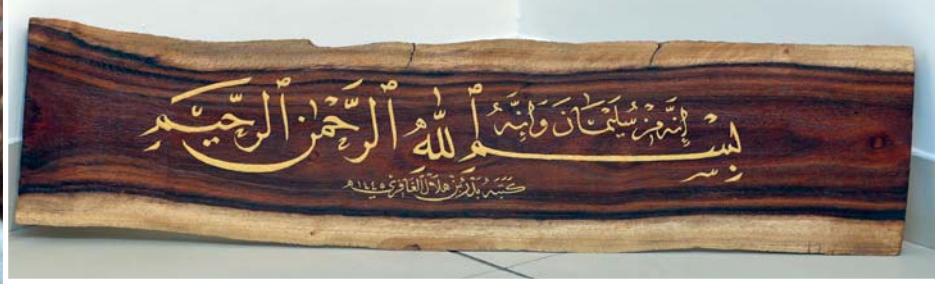 إِنَّهُ مِنْ سُلَيْمَانَ وَإِنَّهُ
بِسْمِ ٱللَّهِ ٱلرَّحْمَٰنِ ٱلرَّحِيمِ
كتبه بدر بن هلال الغافري ١٤٤٥هـ